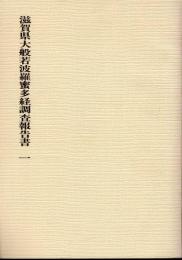 滋賀県大般若波羅蜜多経調査報告書 一